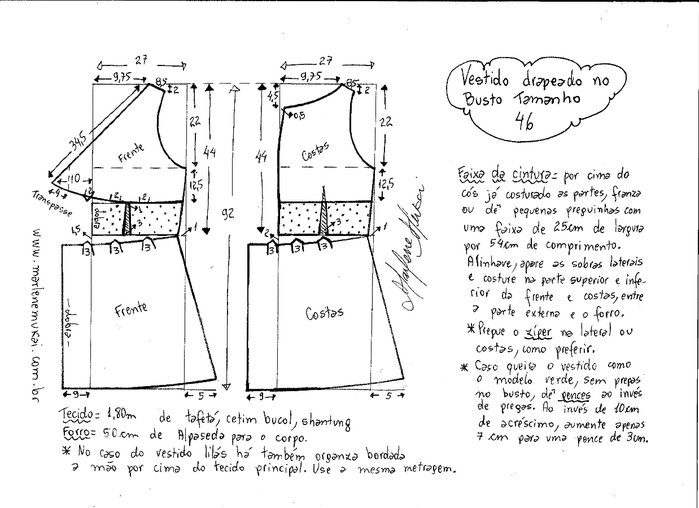 Vestido drapeado no
Busto Tamanho
46
27
9,75
8,5
2
34,5
22
44
Frente
110
4
Transpasse
2
2
2
12,5
dobra
1
3
1,5
3
3
3
1
Frente
dobra
9
5
92
27
9,75
8,5
2
4,5
0,8
22
44
Costas
12,5
3
2
3
3
1
Costas
9
5
www.marlenemukai.com.br
Marlene Mukai
Faixa da cintura= por cima do
cós já costurado as partes, franza
ou dê pequenas preguinhas com
uma faixa de 25cm de largura
por 54cm de comprimento.
Alinhave, apare as sobras laterais
e costure na parte superior e infe-
rior da frente e costas, entre
a parte externa e o forro.
* Pregue o zíper na lateral ou
costas, como preferir.
* Caso queira o vestido como
o modelo verde, sem pregas
no busto, dê pences ao invés
de pregas. Ao invés de 10cm
de acréscimo, aumente apenas
7 cm para uma pence de 3cm.
Tecido= 1,80m de tafetá, cetim bucol, shantung
Forro= 50cm de Alpaseda para o corpo.
* No caso do vestido lilás há também organza bordada
a mão por cima do tecido principal. Use a mesma metragem.